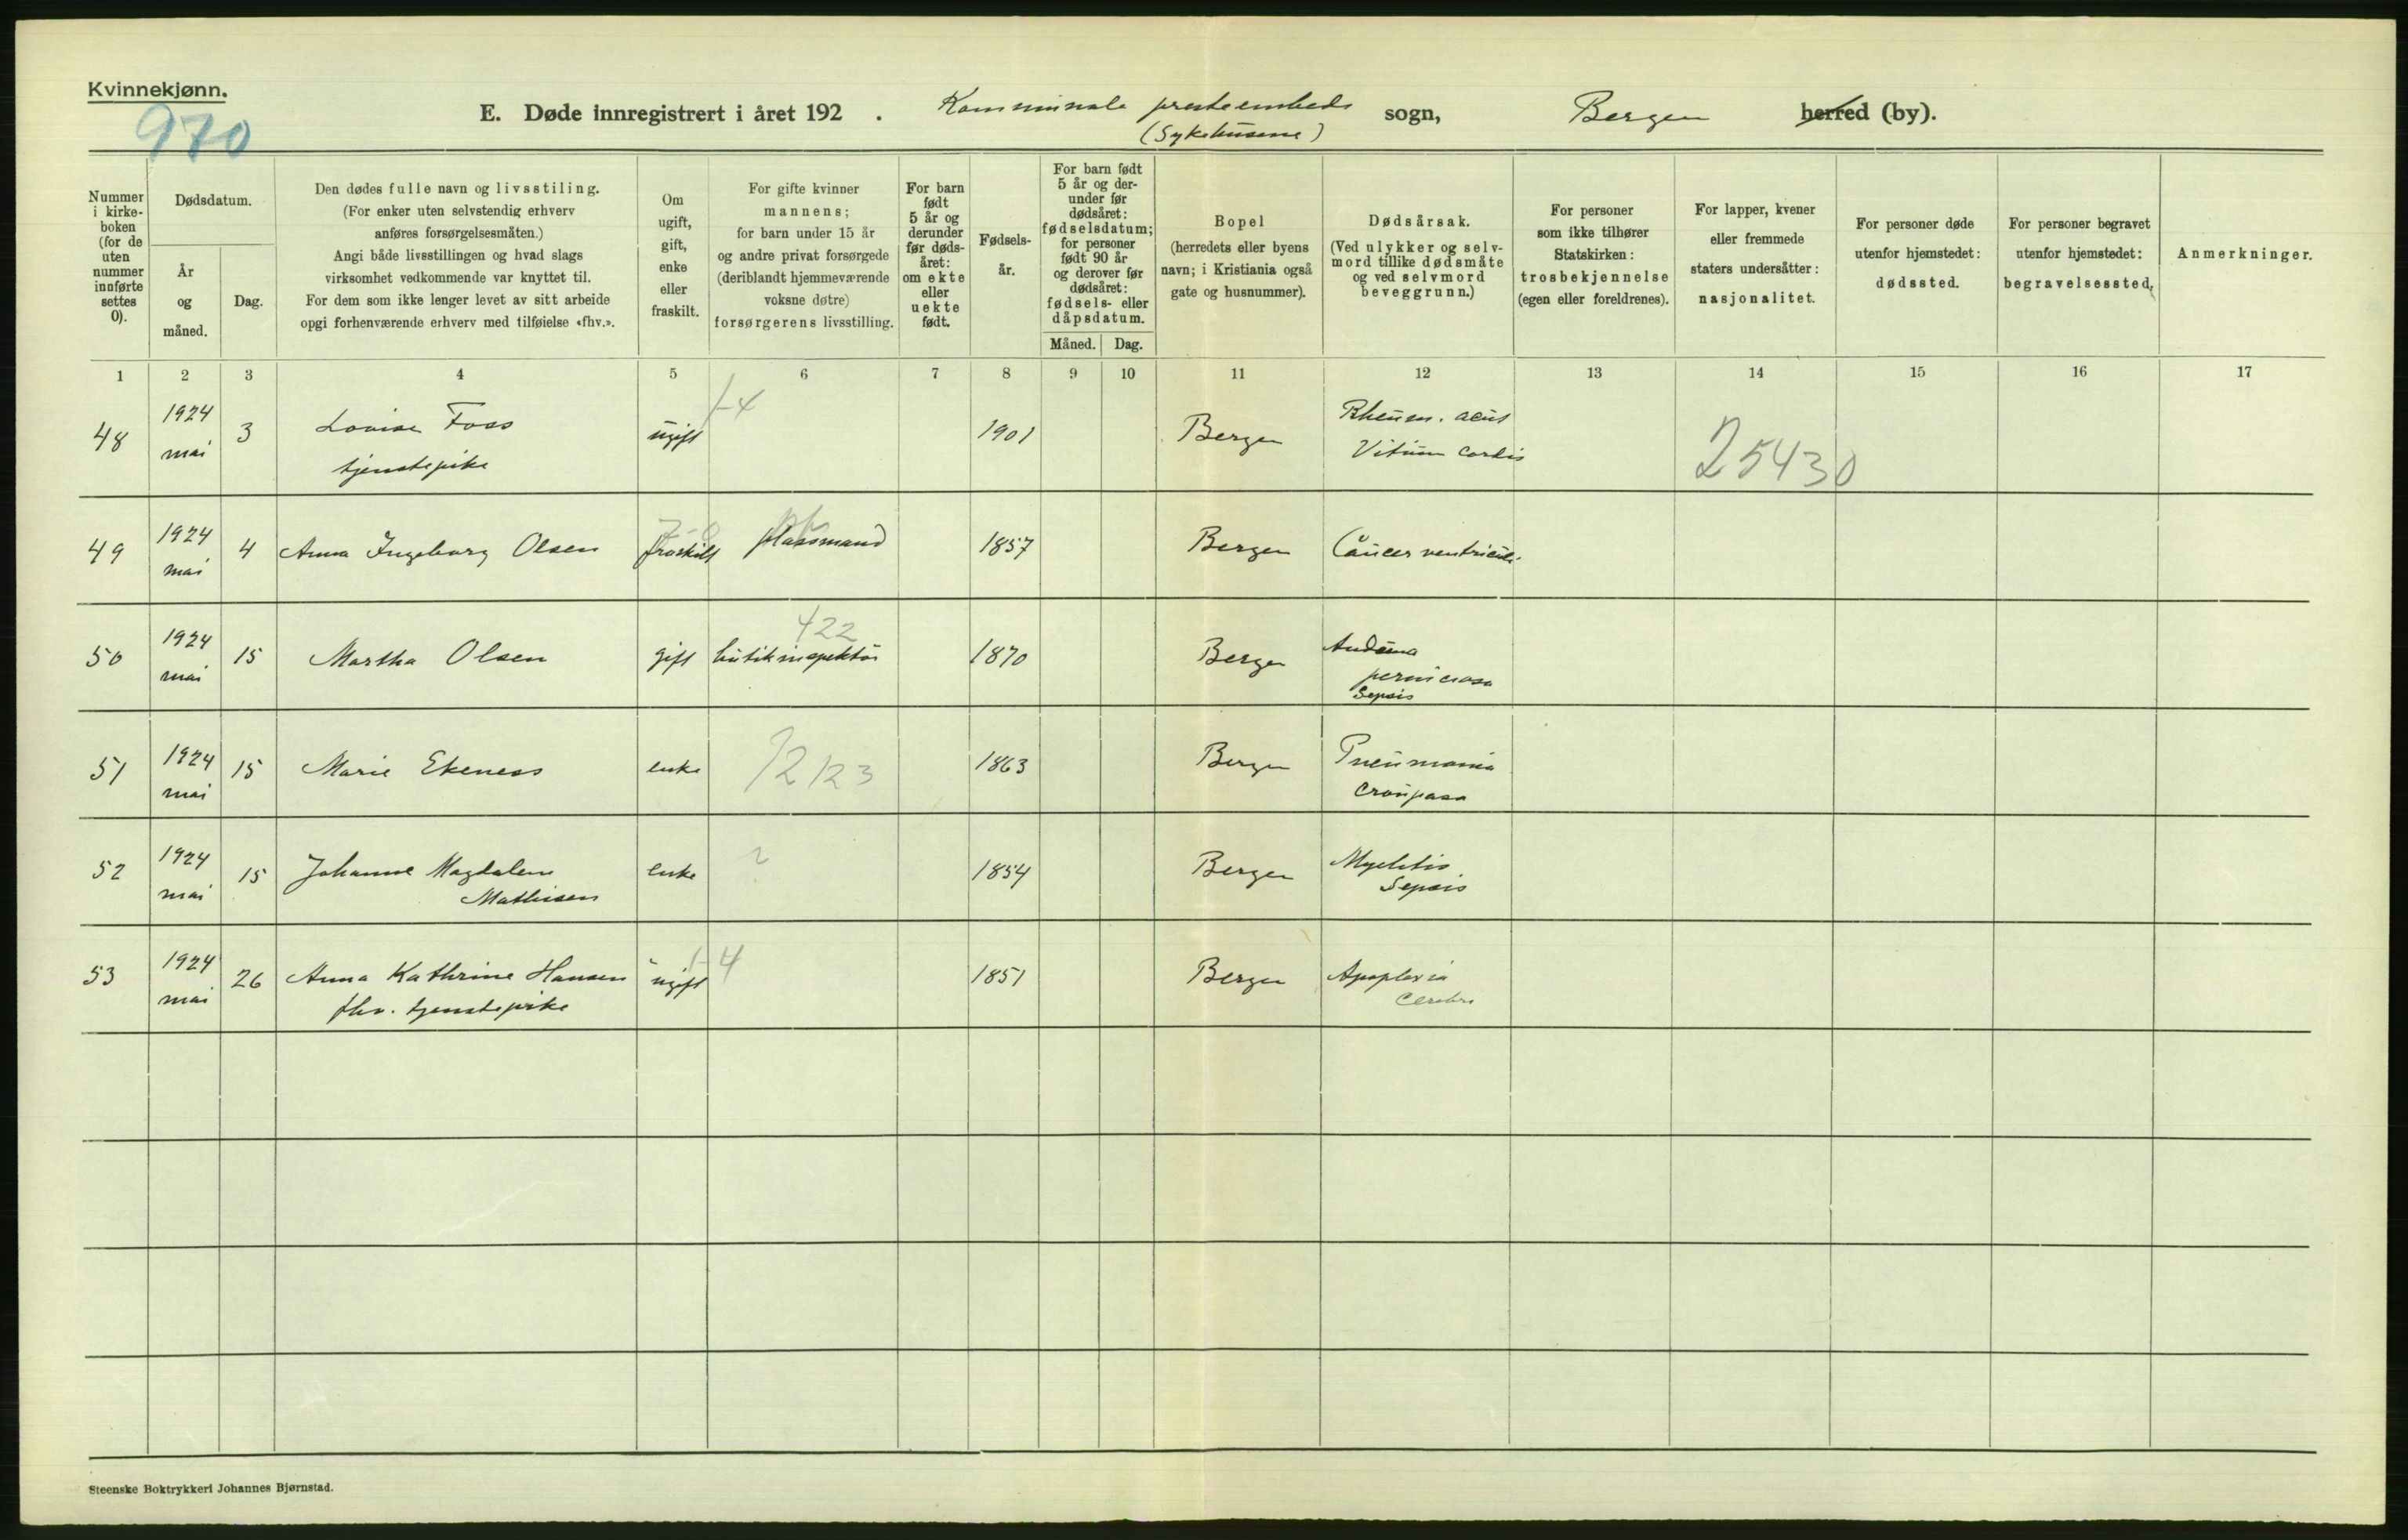 Kvinnekjønn.
970
E. Døde innregistrert i året 192 . Kommunale presteembeds sogn, Bergen herred (by).
(Sykehusene)
Nummer i kirke- boken (for de uten nummer innførte settes 0).
Dødsdatum.
År og måned.
Dag.
Den dødes fulle navn og livsstiling.
(For enker uten selvstendig erhverv
anføres forsørgelsesmåten.)
Angi både livsstillingen og hvad slags
virksomhet vedkommende var knyttet til.
For dem som ikke lenger levet av sitt arbeide
opgi forhenværende erhverv med tilføielse «fhv.».
Om ugift, gift, enke eller fraskilt.
For gifte kvinner
mannens;
for barn under 15 år
og andre privat forsørgede
(deriblandt hjemmeværende
voksne døtre)
forsørgerens livsstilling.
For barn født 5 år og derunder før døds- året: om ekte eller uekte født.
Fødsels- år.
For barn født
5 år og der-
under før
dødsåret:
fødselsdatum;
for personer
født 90 år
og derover før
dødsåret:
fødsels- eller
dåpsdatum.
Måned. Dag.
Bopel
(herredets eller byens
navn; i Kristiania også
gate og husnummer).
Dødsårsak.
(Ved ulykker og selv-
mord tillike dødsmåte
og ved selvmord
beveggrunn.)
For personer
som ikke tilhører
Statskirken:
trosbekjennelse
(egen eller foreldrenes).
For lapper, kvener
eller fremmede
staters undersåtter:
nasjonalitet.
For personer døde
utenfor hjemstedet:
dødssted.
For personer begravet
utenfor hjemstedet:
begravelsessted.
Anmerkninger.
1 2 3 4 5 6 7 8 9 10 11 12 13 14 15 16 17
48 1924 mai 3 Lovise Foss tjenstepike ugift 1-4 1901 Bergen Rheum. acut Vitium cordis 25430
49 1924 mai 4 Anna Ingeborg Olsen fraskilt plassmand 1857 Bergen Cancer ventriculi.
50 1924 mai 15 Martha Olsen gift butikinspektør 422 1870 Bergen perniciosa Sepsis
51 1924 mai 15 Marie Ekeness enke 1863 Bergen Pneumonia crouposa
52 1924 mai 15 Johanne Magdalene Mathisen enke ? 1854 Bergen Myelitis Sepsis
53 1924 mai 26 Anna Kathrine Hansen fhv. tjenstepike ugift 1-4 1851 Bergen Apoplexia cerebri
Steenske Boktrykkeri Johannes Bjørnstad.